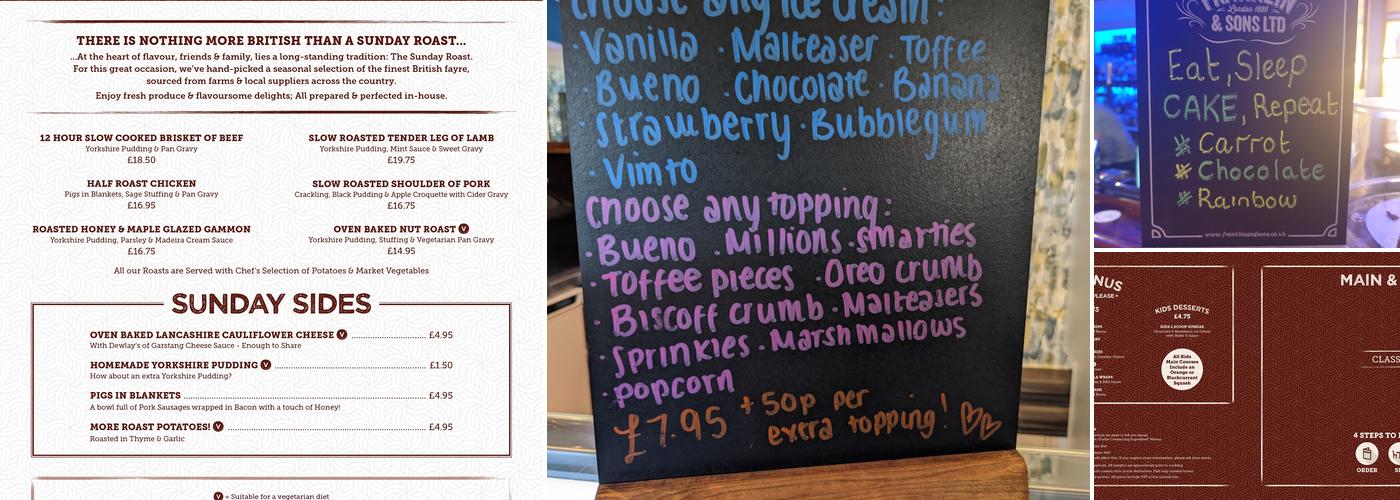 THERE IS NOTHING MORE BRITISH THAN A SUNDAY ROAST...
...At the heart of flavour, friends & family, lies a long-standing tradition: The Sunday Roast.
For this great occasion, we've hand-picked a seasonal selection of the finest British fayre,
sourced from farms & local suppliers across the country.
Enjoy fresh produce & flavoursome delights; All prepared & perfected in-house.
12 HOUR SLOW COOKED BRISKET OF BEEF
Yorkshire Pudding & Pan Gravy
£18.50
HALF ROAST CHICKEN
Pigs in Blankets, Sage Stuffing & Pan Gravy
£16.95
ROASTED HONEY & MAPLE GLAZED GAMMON
Yorkshire Pudding, Parsley & Madeira Cream Sauce
£16.75
SLOW ROASTED TENDER LEG OF LAMB
Yorkshire Pudding, Mint Sauce & Sweet Gravy
£19.75
SLOW ROASTED SHOULDER OF PORK
Crackling, Black Pudding & Apple Croquette with Cider Gravy
£16.75
OVEN BAKED NUT ROAST V
Yorkshire Pudding, Stuffing & Vegetarian Pan Gravy
£14.95
All our Roasts are Served with Chef's Selection of Potatoes & Market Vegetables
SUNDAY SIDES
OVEN BAKED LANCASHIRE CAULIFLOWER CHEESE V £4.95
With Dewlay's of Garstang Cheese Sauce - Enough to Share
HOMEMADE YORKSHIRE PUDDING V £1.50
How about an extra Yorkshire Pudding?
PIGS IN BLANKETS £4.95
A bowl full of Pork Sausages wrapped in Bacon with a touch of Honey!
MORE ROAST POTATOES! V £4.95
Roasted in Thyme & Garlic
V = Suitable for a vegetarian diet
Choose any ice cream:
· Vanilla · Malteaser · Toffee
· Bueno · Chocolate · Banana
· Strawberry · Bubblegum
· Vimto
Choose any topping:
· Bueno · Millions · Smarties
· Toffee pieces · Oreo crumb
· Biscoff crumb · Malteasers
· Sprinkles · Marshmallows
· popcorn
£7.95 + 50p per
extra topping!
FRANKLIN
London 1886
& SONS LTD
Eat, Sleep
CAKE, Repeat
Carrot
Chocolate
Rainbow
www.franklinandsons.co.uk
NUS
PLEASE
KIDS DESSERTS
£4.75
KIDS 2 SCOOP SUNDAE
All Kids
Main Courses
Include an
Orange or
Blackcurrant
Squash
MAIN &
CLASS
4 STEPS TO
ORDER